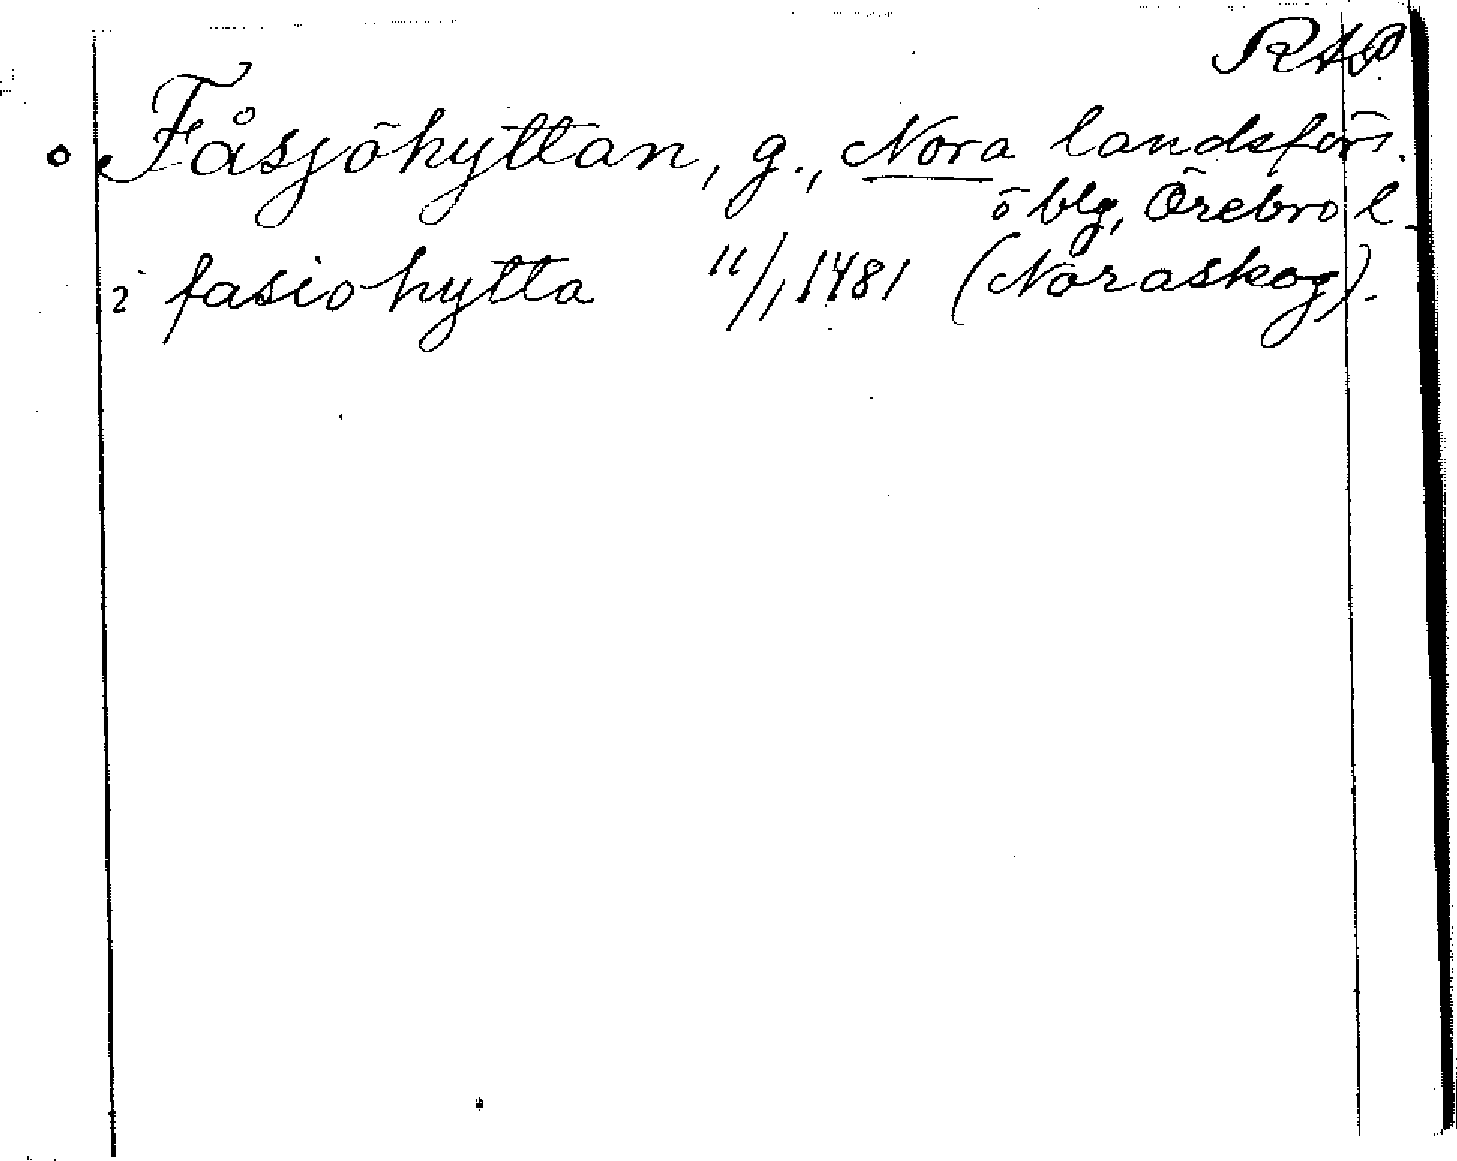 RAP
Fåsjöhyttan, g., Nora landsförs.
ö blg, Örebro l.
i fasiohytta 11/1 1481 (Noraskog).